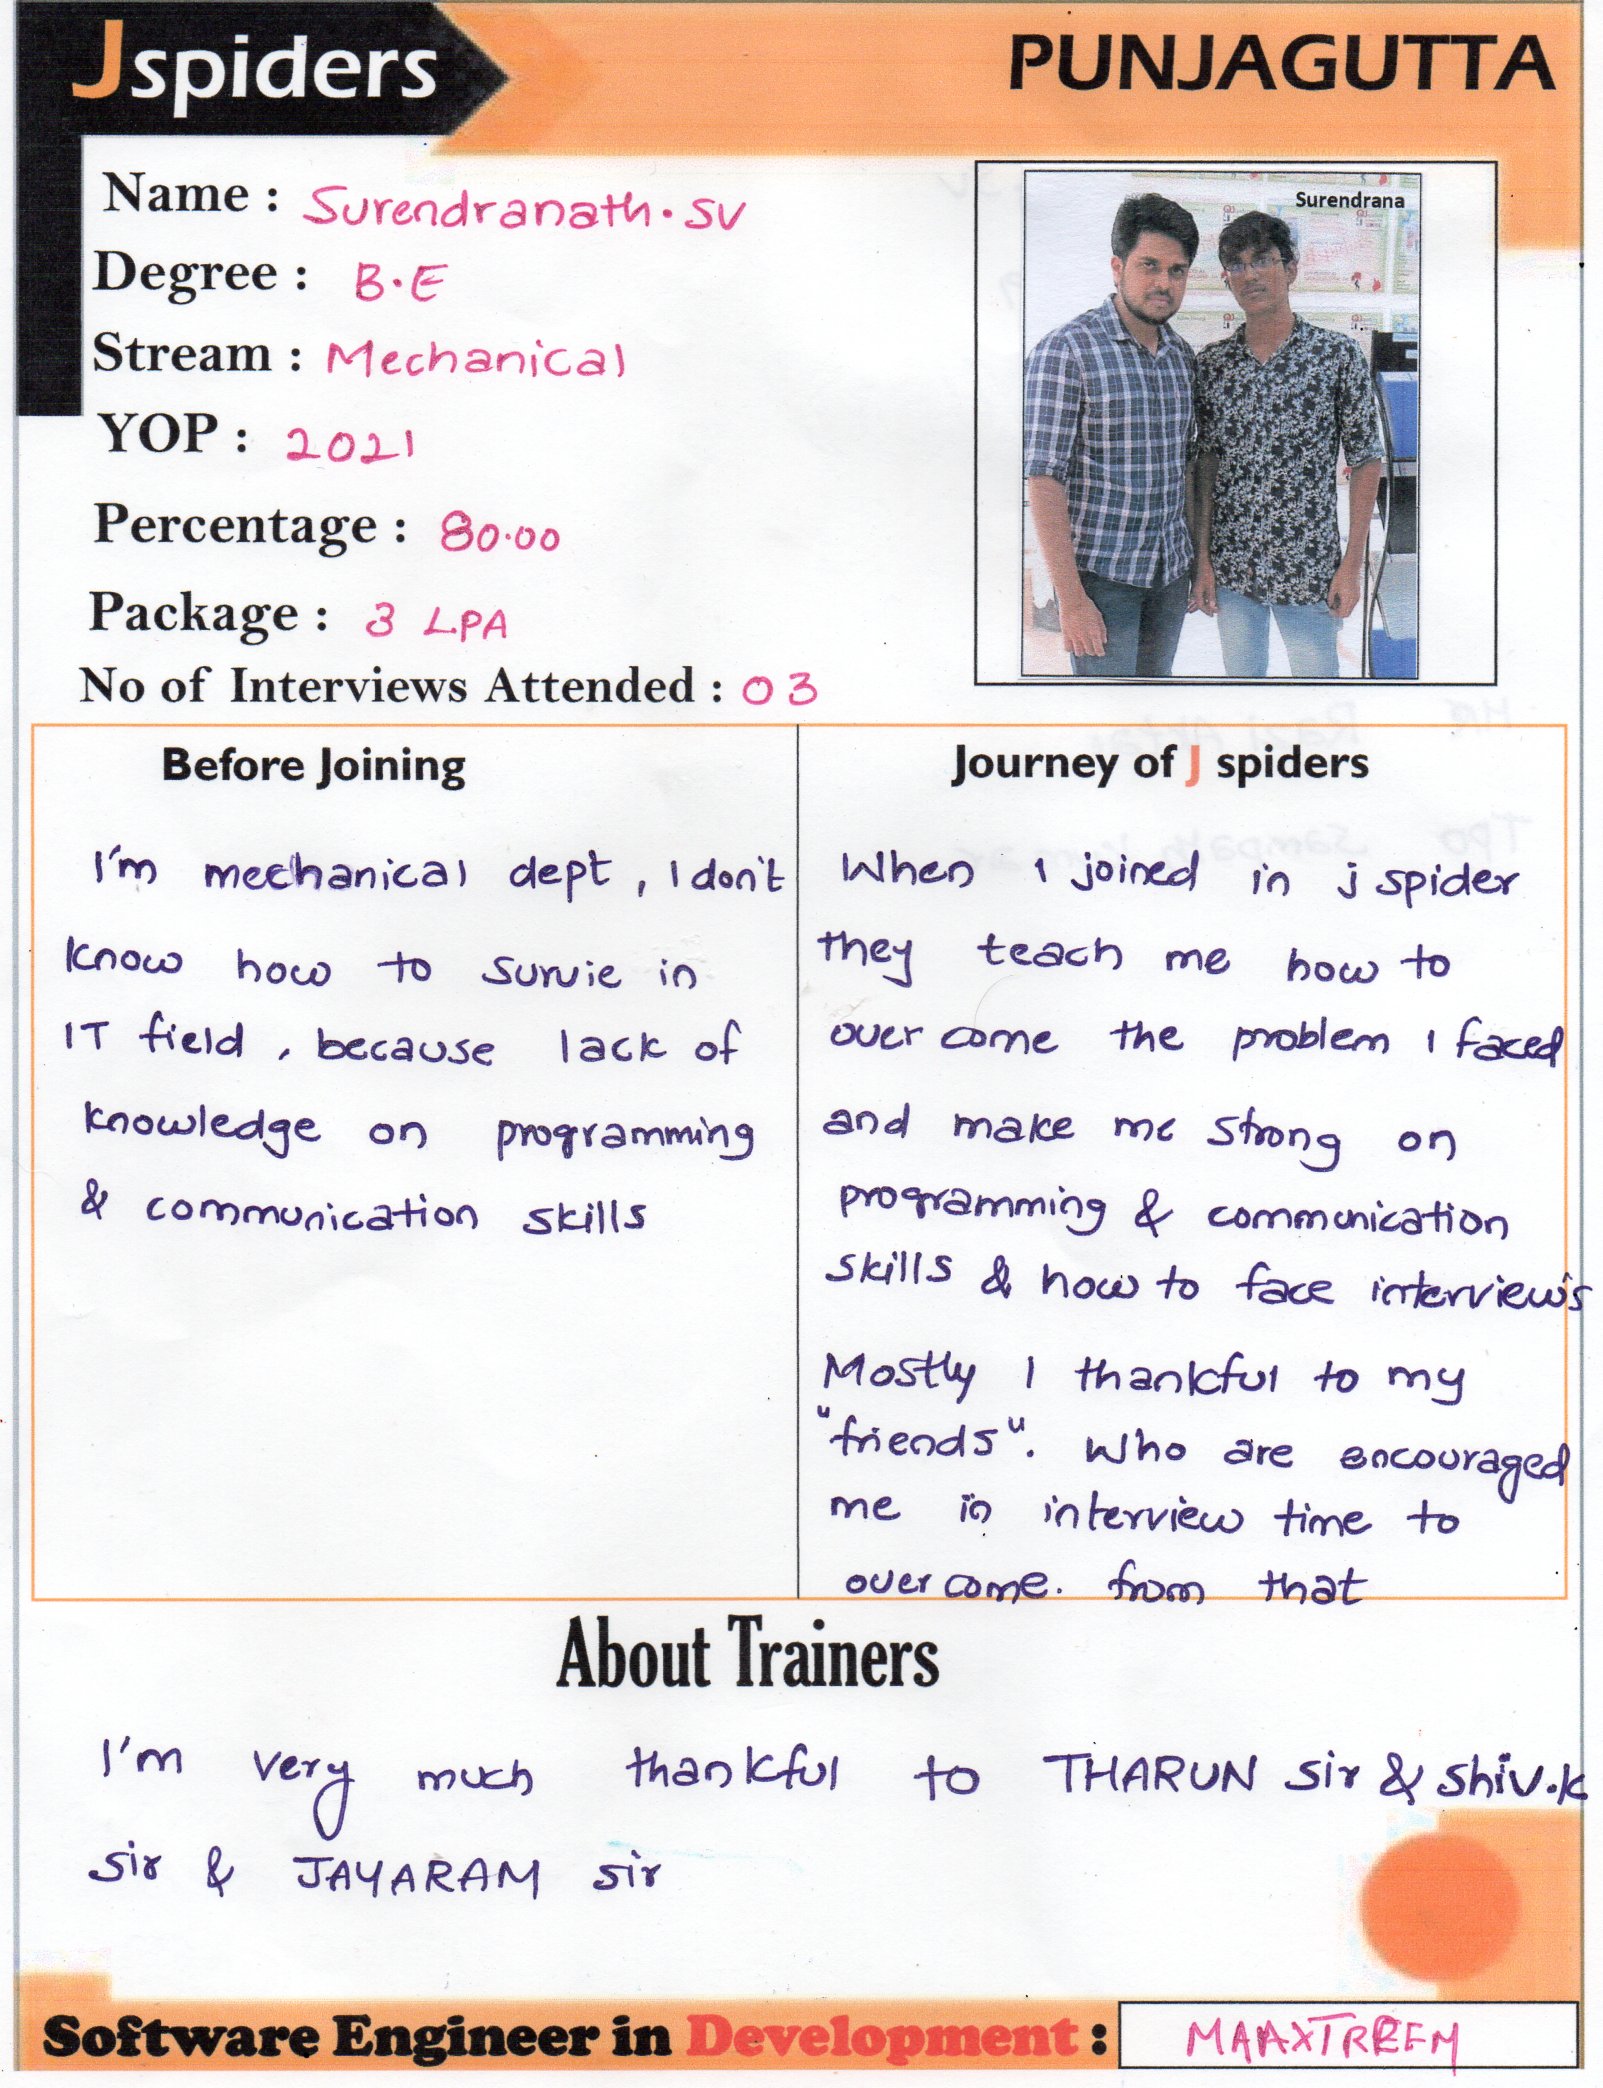 Jspiders
PUNJAGUTTA
Name : Surendranath.SV
Degree : B.E
Stream : Mechanical
YOP : 2021
Percentage : 80.00
Package : 3 LPA
No of Interviews Attended : 03
Surendrana
Before Joining
I'm mechanical dept, I don't
know how to survie in
IT field, because lack of
knowledge on programming
& communication skills
Journey of J spiders
When I joined in j spider
they teach me how to
over come the problem I faced
and make me strong on
programming & communication
skills & how to face interview's
Mostly I thankful to my
"friends". Who are encouraged
me in interview time to
over come. from that
About Trainers
I'm very much thankful to THARUN sir & shiv.k
sir & JAYARAM sir
Software Engineer in Development : MAAXTREEM